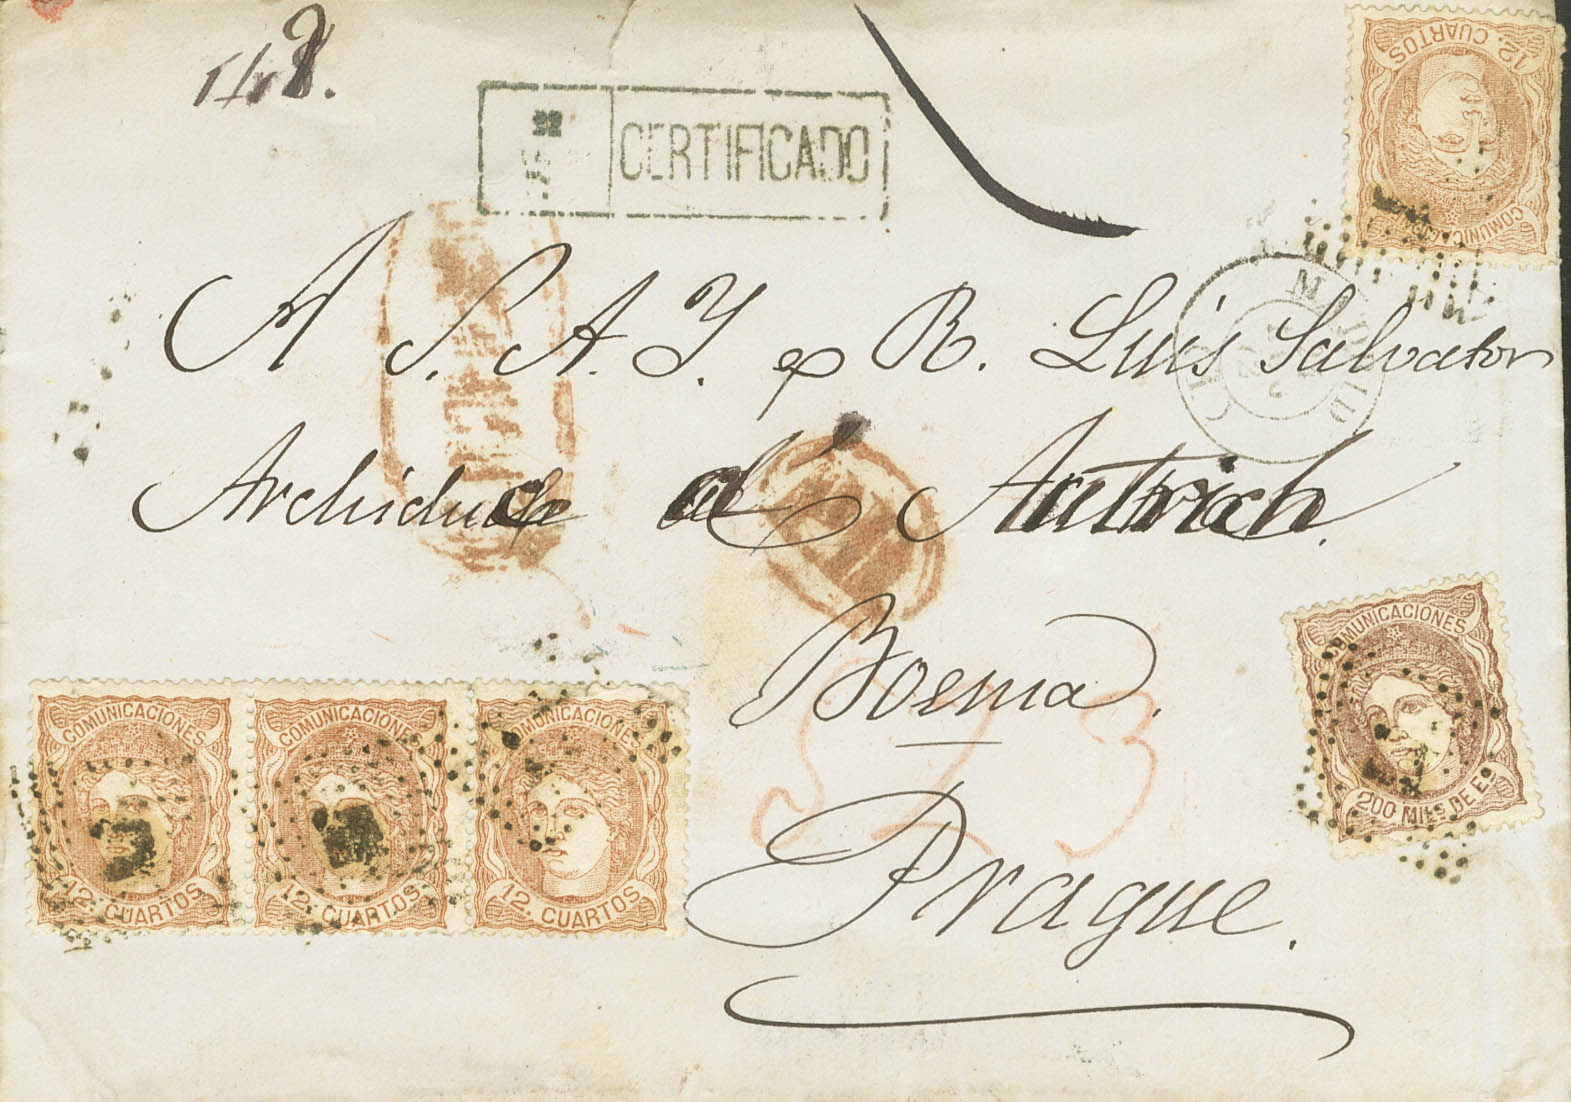 148.
CERTIFICADO
12. CUARTOS
COMUNICACIONES
MADRID
A S. A. Y. y R. Luis Salvator
Archiduc d' Autrich.
Boema.
Prague.
COMUNICACIONES
12. CUARTOS
COMUNICACIONES
12. CUARTOS
COMUNICACIONES
12. CUARTOS
COMUNICACIONES
200 MILS DE E.